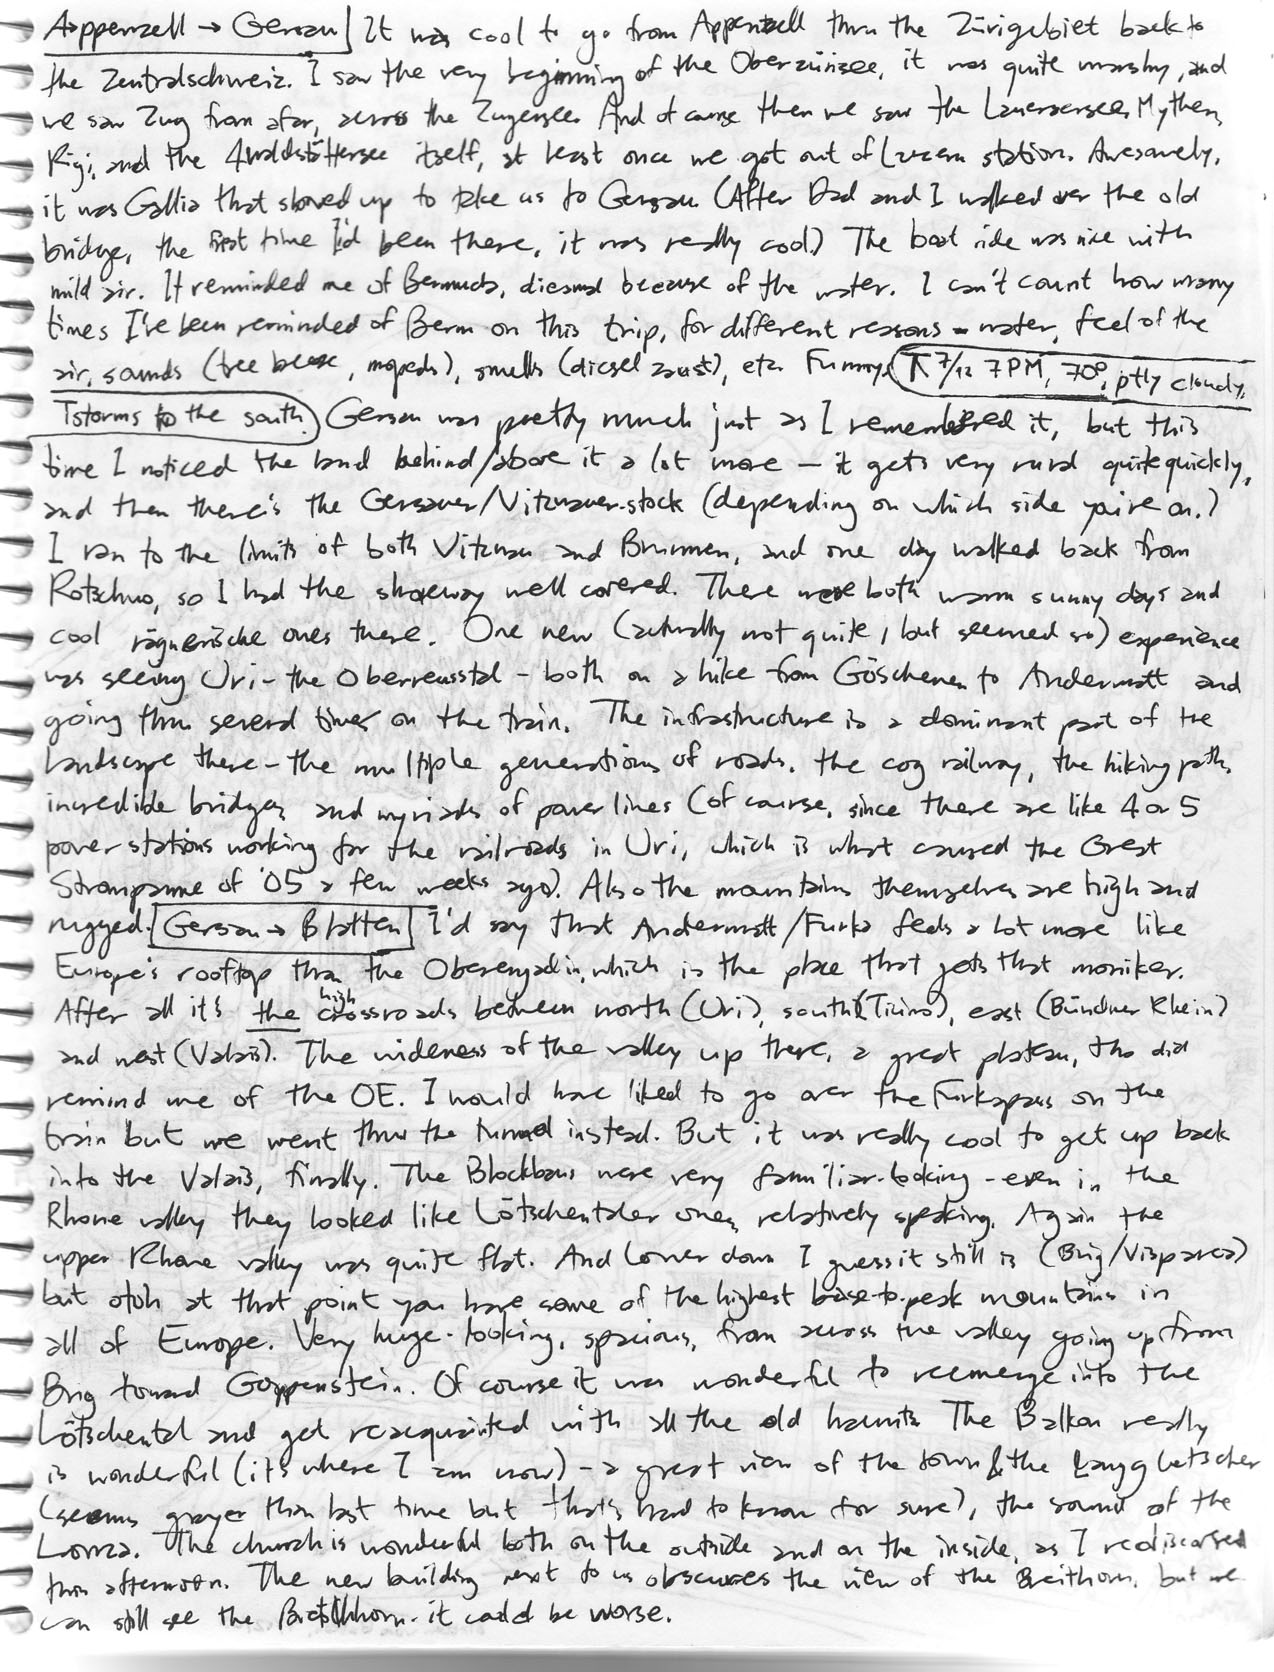 Appenzell → Gersau] It was cool to go from Appenzell thru the Zürigebiet back to
the Zentralschweiz. I saw the very beginning of the Oberzürisee, it was quite marshy, and
we saw Zug from afar, across the Zugersee. And of course then we saw the Lauerzersee, Mythen,
Rigi, and the 4waldstättersee itself, at least once we got out of Luzern station. Awesomely,
it was Gallia that showed up to take us to Gersau (After Dad and I walked over the old
bridge, the first time I'd been there, it was really cool.) The boat ride was nice with
mild air. It reminded me of Bermuda, because of the water. I can't count how many
times I've been reminded of Berm on this trip, for different reasons - water, feel of the
air, sounds (tree, mopeds), smells (diesel zaust), etc. Funny. 7/12 7PM, 70°, ptly cloudy,
Tstorms to the south. Gersau was pretty much just as I remembered it, but this
time I noticed the land behind/above it a lot more – it gets very rural quite quickly,
and then there's the Gersauer/Vitznauer-stock (depending on which side you're on.)
I ran to the limits of both Vitznau and Brunnen, and one day walked back from
Rotschuo, so I had the shoreway well covered. There were both warm sunny days and
cool rägnerische ones there. One new (actually not quite, but seemed so) experience
was seeing Uri - the Oberreusstal - both on a hike from Göschenen to Andermatt and
going thru several times on the train. The infrastructure is a dominant part of the
landscape there - the multiple generations of roads, the cog railway, the hiking path,
incredible bridges, and myriads of power lines (of course, since there are like 4 or 5
power stations working for the railroads in Uri, which is what caused the Great
Strompanne of '05 a few weeks ago). Also the mountains themselves are high and
rugged. [Gersau → Blatten] I'd say that Andermatt/Furka feels a lot more like
Europe's rooftop than the Oberengadin, which is the place that gets that moniker.
After all it's the high crossroads between north (Uri), south (Ticino), east (Bündner Rhein)
and west (Valais). The wideness of the valley up there, a great plateau, tho did
remind me of the OE. I would have liked to go over the Furkapass on the
train but we went thru the tunnel instead. But it was really cool to get up back
into the Valais, finally. The Blockbaus were very familiar-looking - even in the
Rhone valley they looked like Lötschentaler ones, relatively speaking. Again the
upper Rhone valley was quite flat. And lower down I guess it still is (Brig/Visp area)
but otoh at that point you have some of the highest base-to-peak mountains in
all of Europe. Very huge-looking, spacious, from across the valley going up from
Brig toward Goppenstein. Of course it was wonderful to reemerge into the
Lötschental and get reacquainted with all the old haunts. The Balkon really
is wonderful (it's where I am now) - a great view of the town & the Langgletscher
(seems grayer than last time but that's hard to know for sure), the sound of the
Lonza. The church is wonderful both on the outside and on the inside, as I rediscovered
this afternoon. The new building next to us obscures the view of the Breithorn, but we
can still see the Bietschhorn - it could be worse.